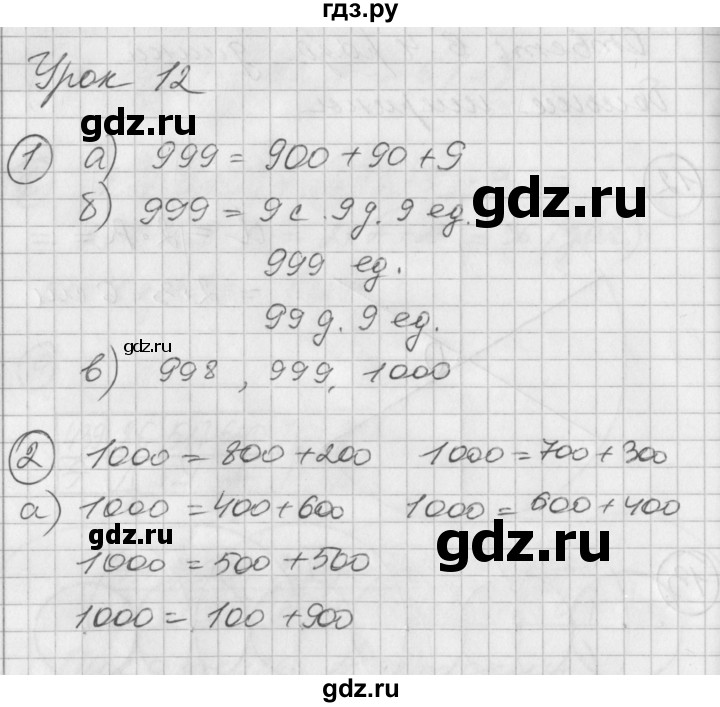 гдз.ру
Урок 12
gdz.ru
1 а) 999 = 900 + 90 + 9
б) 999 = 9 с. 9 д. 9 ед.
gdz.ru
999 ед.
99 д. 9 ед.
gdz.ru
в) 998, 999, 1000
2 1000 = 800 + 200 1000 = 700 + 300
а) 1000 = 400 + 600 1000 = 600 + 400
gdz.ru
gdz.ru
1000 = 500 + 500
1000 = 100 + 900
gdz.ru